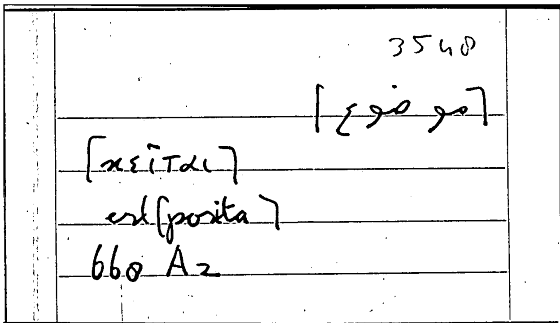 3548
[موضوع]
[κεῖται]
est [posita]
660 A2